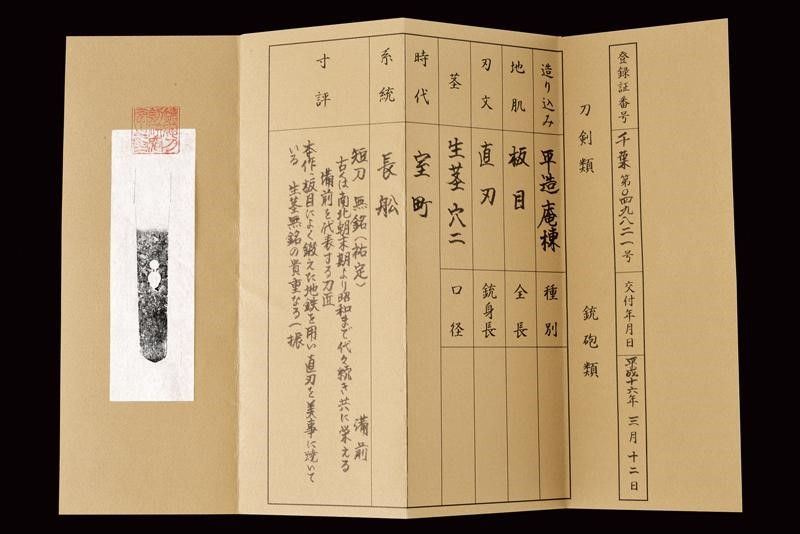 登録証番号 千葉 第〇四九八二一号 交付年月日 平成十六年 三月 十二日
刀剣類 銃砲類
造り込み 平造庵棟 種別
地肌 板目 全長
刃文 直刃 銃身長
茎 生茎 穴二 口径
時代 室町
系統 長舩
寸評
短刀 無銘(祐定) 備前
古くは南北朝末期より昭和まで代々続き共に栄える
備前を代表する刀匠
本作、板目によく鍛えた地鉄を用い直刃を美事に焼いて
いる 生茎無銘の貴重なる一振